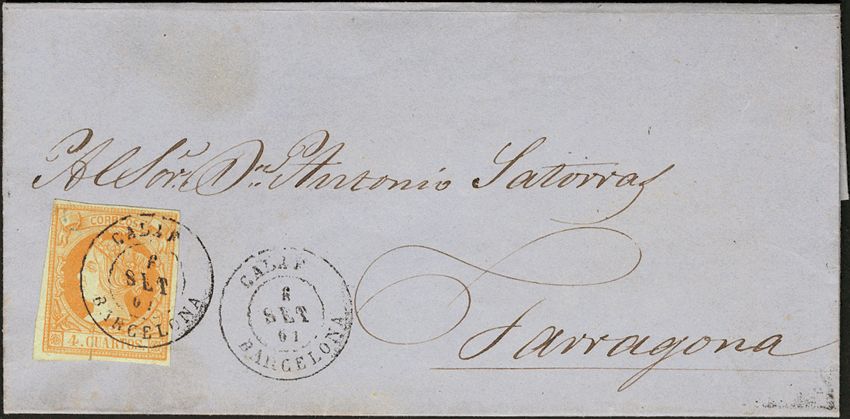 Al Sor. Dn. Antonio Satorras
CORREOS
CALAF
SET
61
BARCELONA
4. CUARTOS
CALAF
6
SET
61
BARCELONA
Tarragona